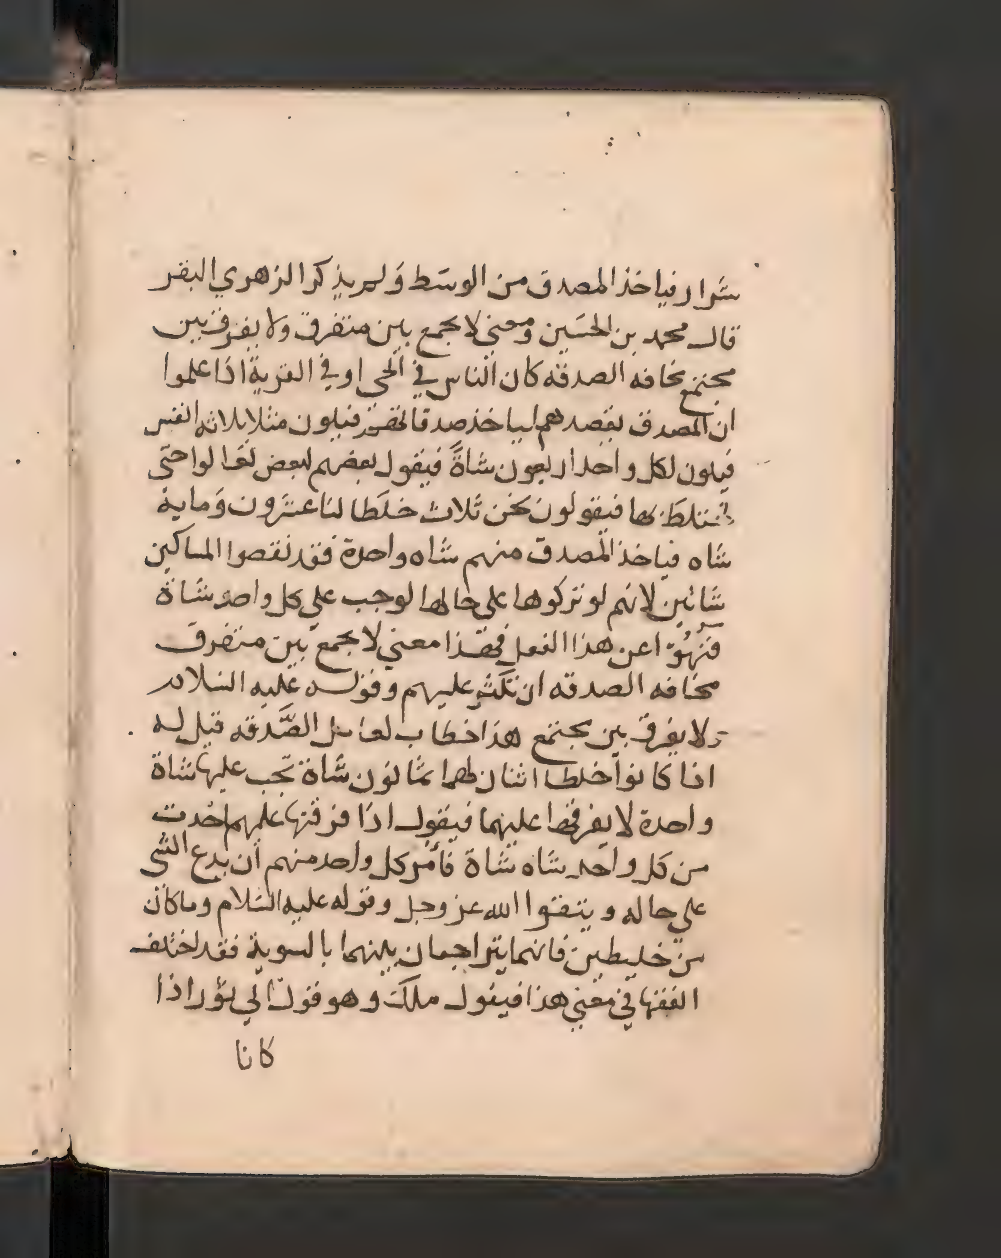 شرار فياخذ المصدق من الوسط ولم يذكر الزهري البقر
قال محمد بن الحسين ومعني لا يجمع بين متفرق ولا يفرق بين
مجتمع مخافه الصدقه كان الناس في الحي او في القرية اذا علموا
ان المصدق يقصدهم لياخذ صدقاتهم فيكون مثلا ثلاثه انفس
فيكون لكل واحد اربعون شاة فيقول بعضهم لبعض تعالوا حتى
نختلط بها فيقولون نحن ثلاث خلطا لنا عشرون وماية
شاه فياخذ المصدق منهم شاه واحدة فقد نقصوا المساكين
شاتين لانهم لو تركوها علي حالها لوجب علي كل واحد شاة
فنهوا عن هذا الفعل فهذا معني لا يجمع بين متفرق
مخافه الصدقه ان تكثر عليهم وقوله عليه السلام
ولا يفرق بين مجتمع هذا خطاب لعامل الصدقه قيل له
اذا كانوا خلطا اثنان لهما ثمانون شاة تجب عليها شاة
واحدة لا يفرقها عليهما فيقول اذا فرقتها عليهم اخذت
من كل واحد شاه شاة فأمر كل واحد منهم ان يدع الشي
علي حاله و يتقوا الله عز وجل وقوله عليه السلام وما كان
من خليطين فانهما يتراجعان بينهما بالسوية فقد اختلف
الفقها في معني هذا فيقول ملك وهو قول ابي ثور اذا
كانا